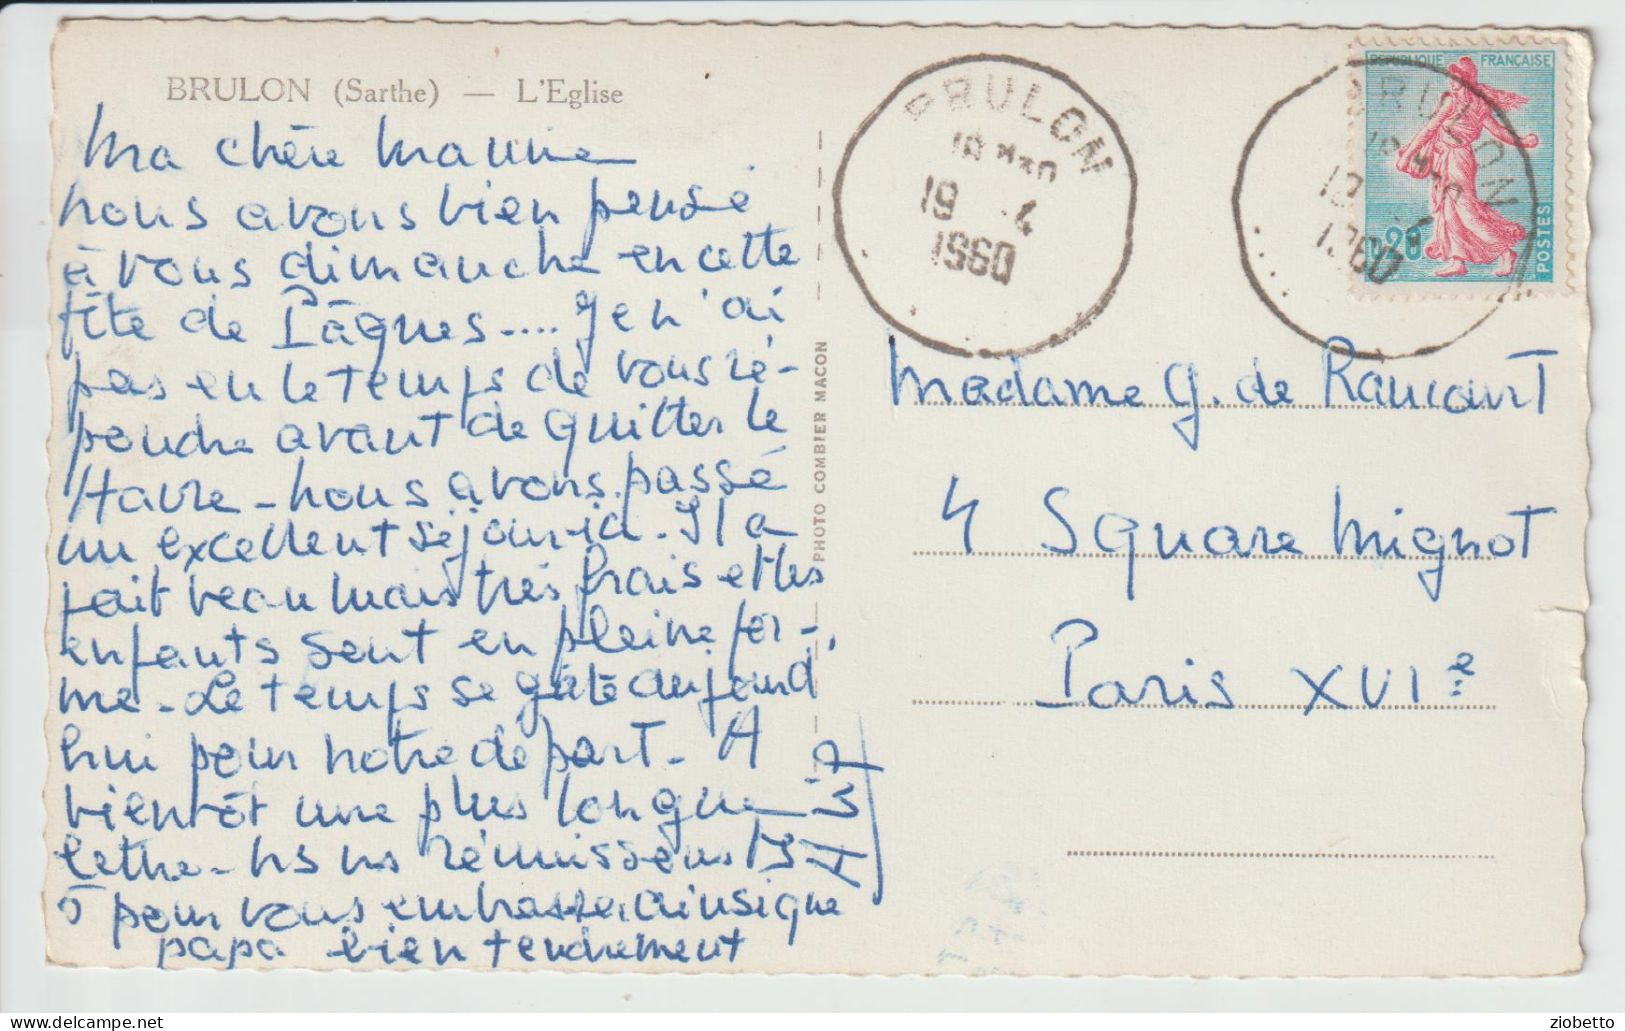 BRULON (Sarthe) — L'Eglise
Ma chère Mamie
nous avons bien pensé
à vous dimanche en cette
fête de Pâques.... Je n'ai
pas eu le temps de vous ré-
pondre avant de quitter le
Havre - nous avons passé
un excellent séjour ici. Il a
fait beau mais très frais et les
enfants sont en pleine for-
me - Le temps se gâte aujourd'
hui pour notre départ - A
bientôt une plus longue
lettre - ns ns réunissons
pour vous embrasser ainsi que
papa bien tendrement
PHOTO COMBIER MACON
BRULON
19 -4
1960
BRULON
1960
REPUBLIQUE FRANÇAISE
POSTES
Madame G. de Raucourt
4 Square Mignot
Paris XVIe
delcampe.net
ziobetto